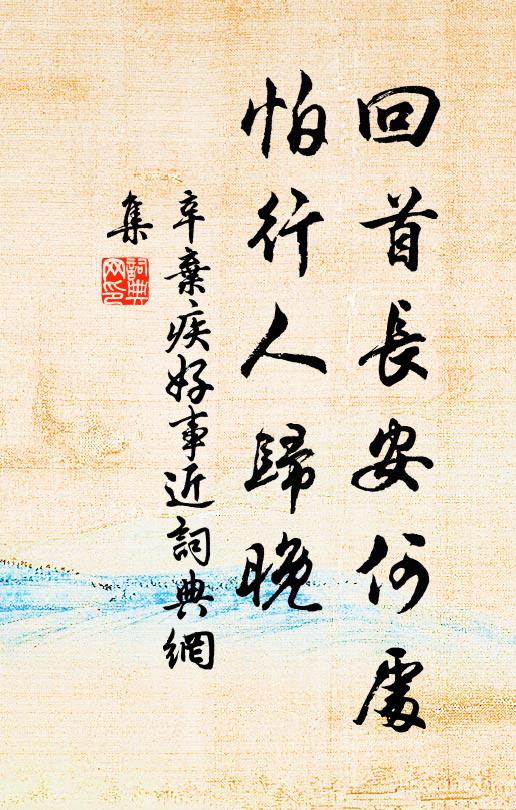 回首長安何處
怕行人歸晚
辛棄疾好事近詞典網
集
詞典網印